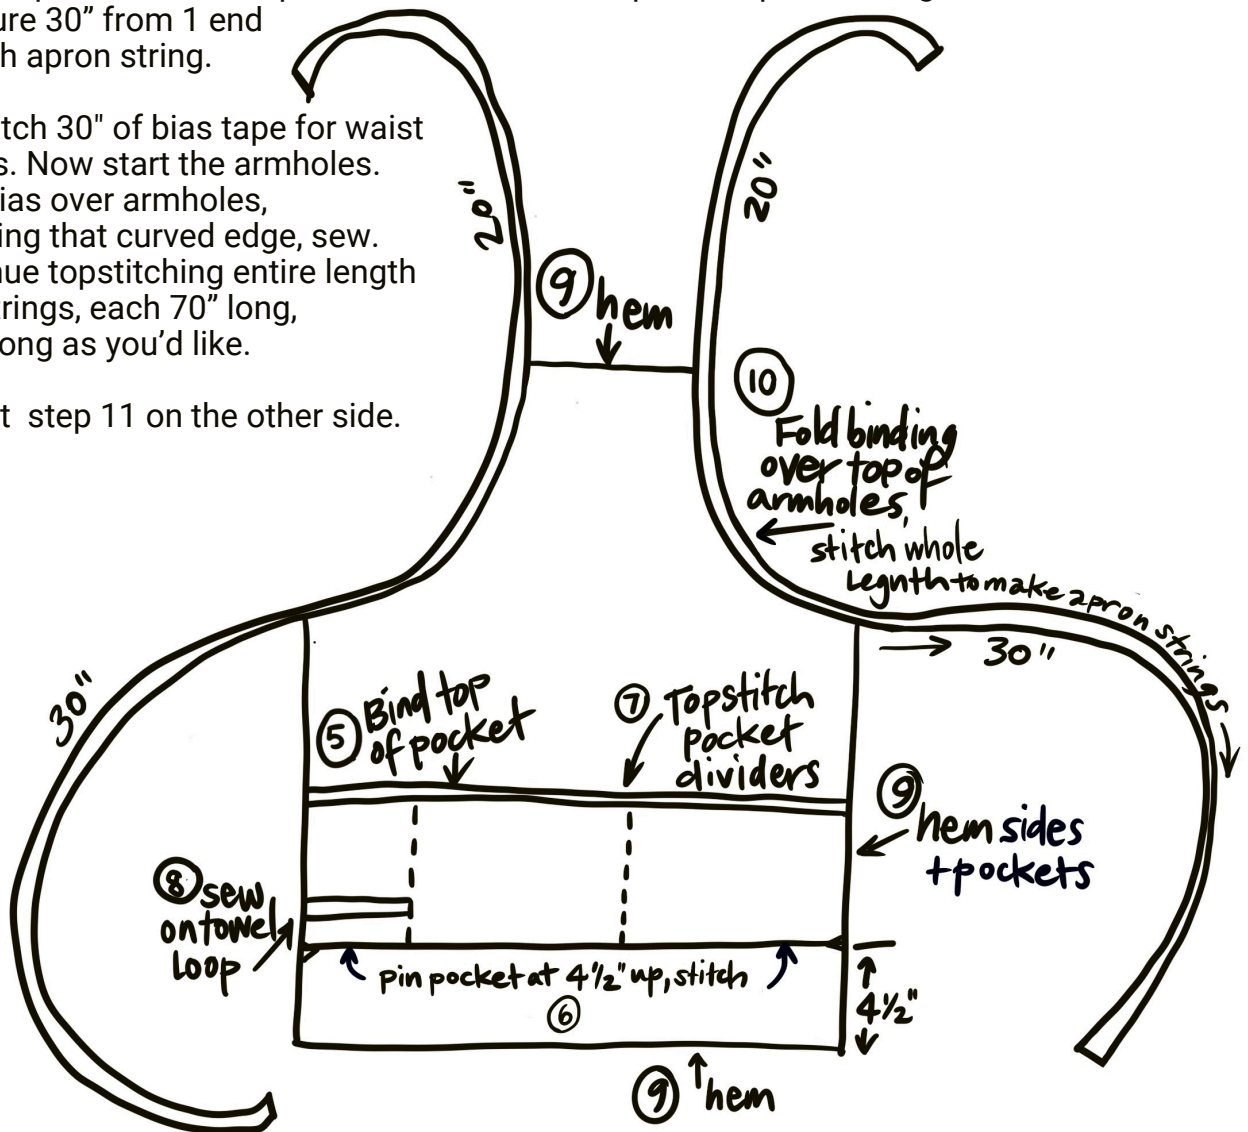 ure 30” from 1 end
h apron string.
tch 30" of bias tape for waist
s. Now start the armholes.
ias over armholes,
ing that curved edge, sew.
ue topstitching entire length
trings, each 70” long,
ong as you’d like.
t step 11 on the other side.
20"
20"
9 hem
10
Fold binding
over top of
armholes,
stitch whole
Legnth to make apron strings
30"
30"
5 Bind top
of pocket
7 Topstitch
pocket
dividers
9
hem sides
+pockets
8 sew
on towel
loop
pin pocket at 4½" up, stitch
6
4½"
9 hem